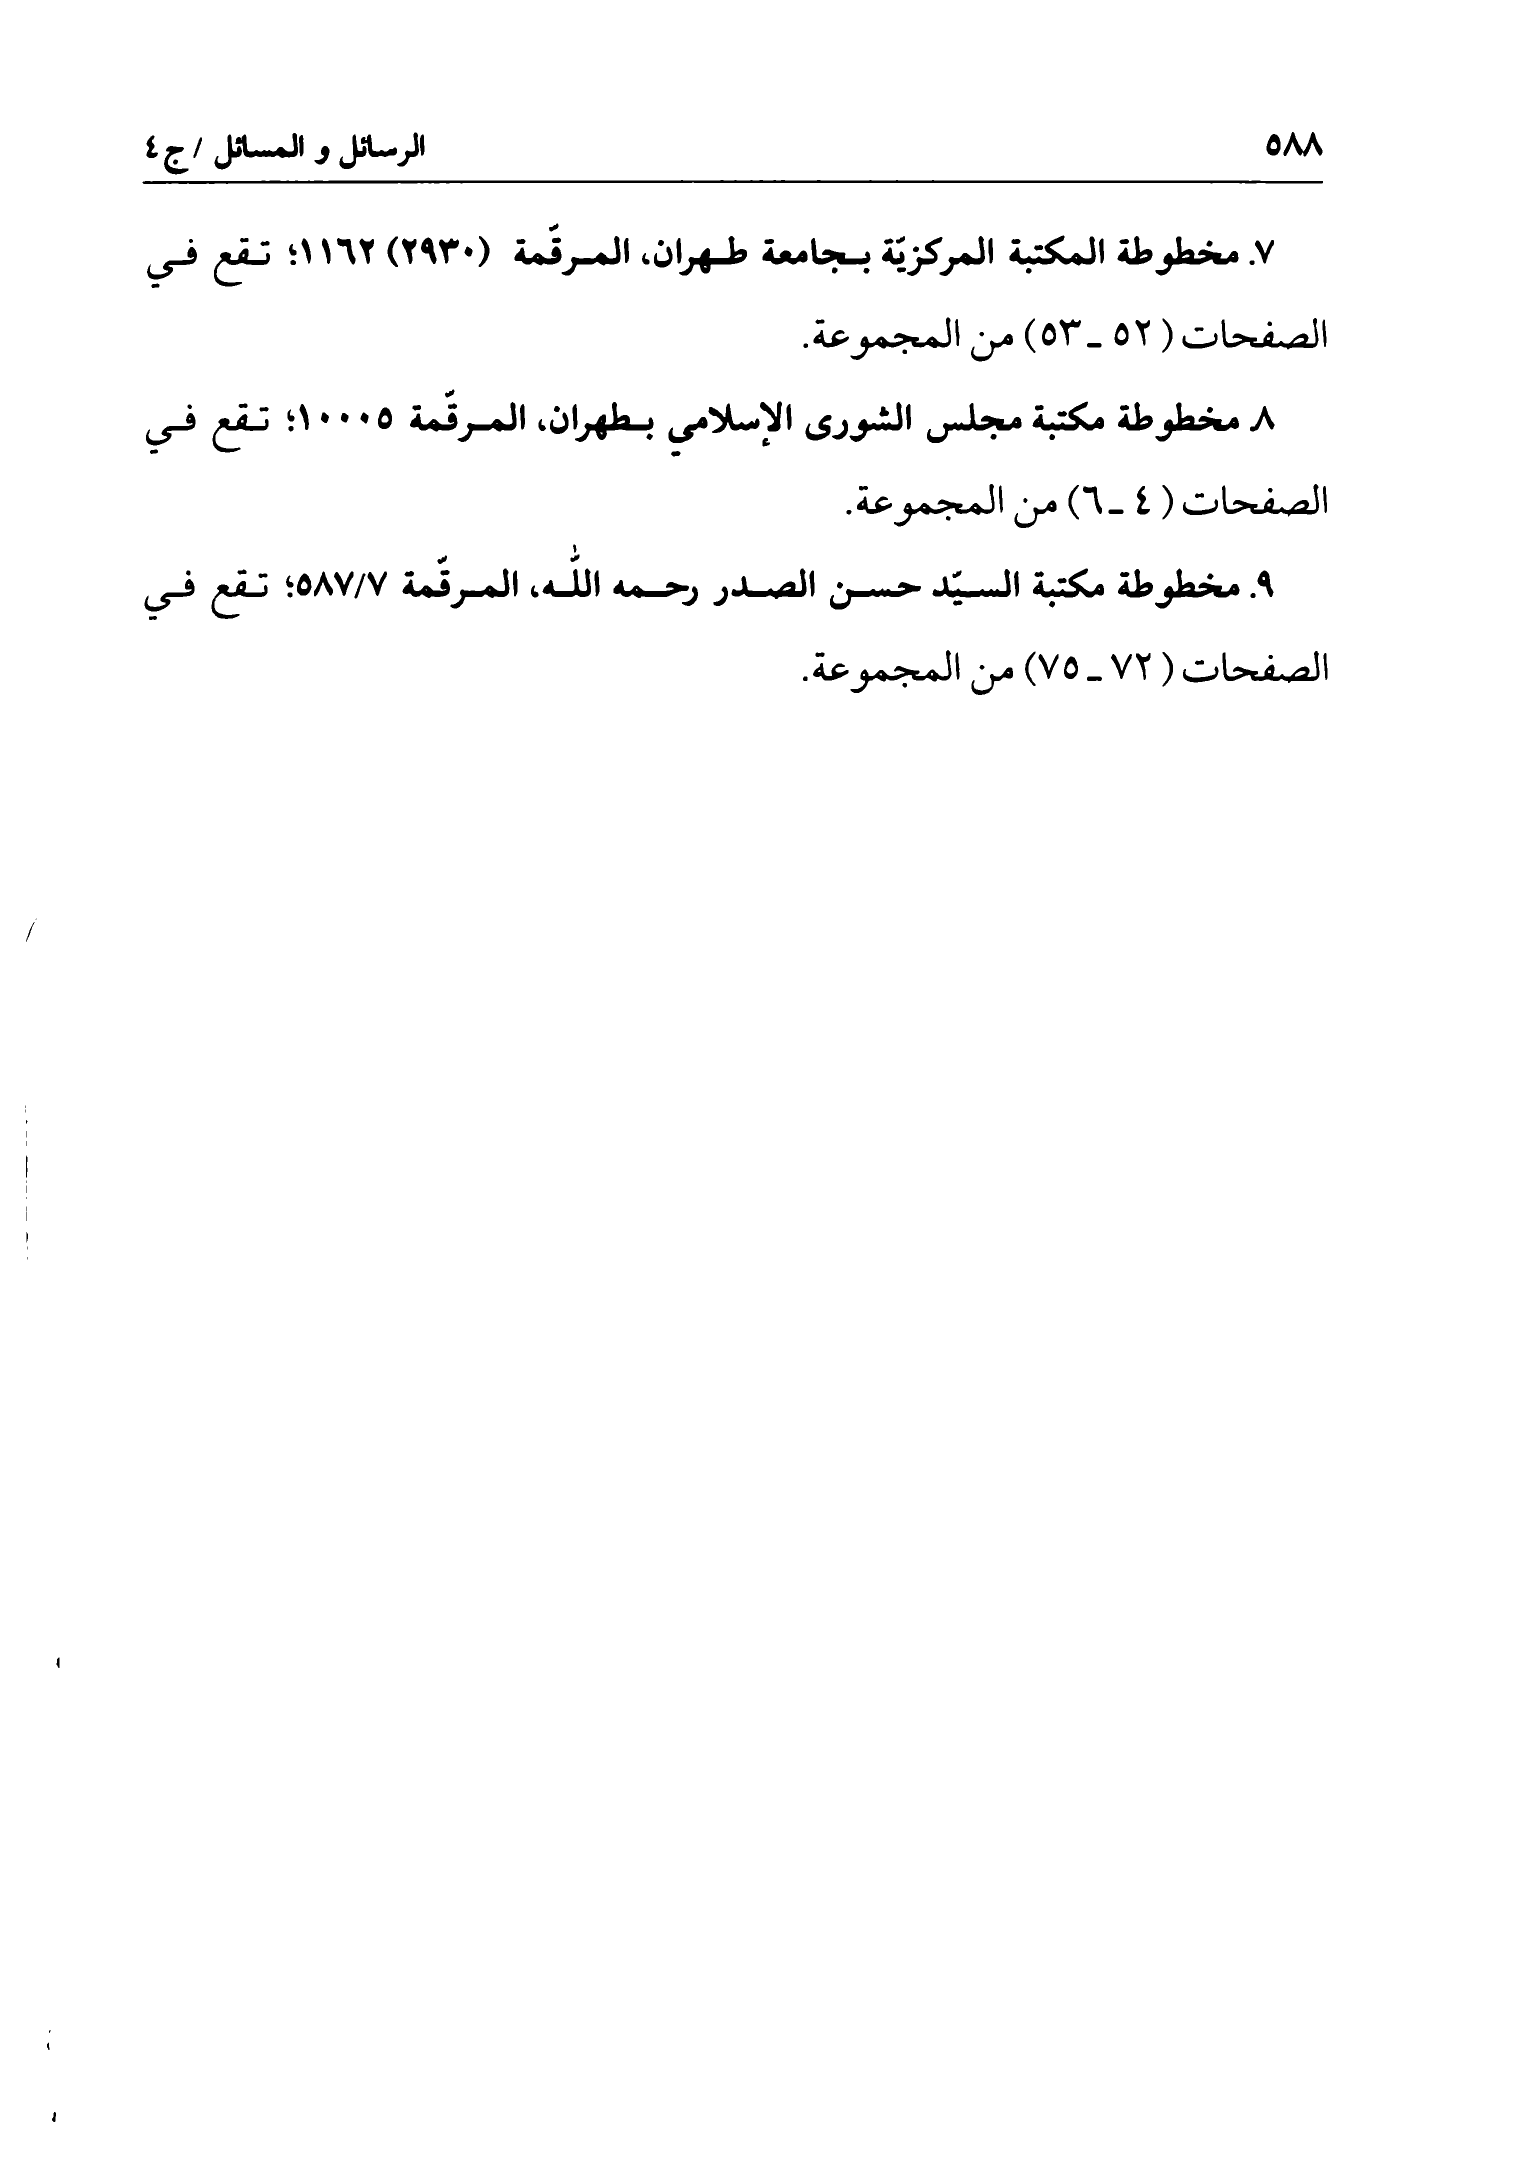 ٥٨٨ الرسائل و المسائل / ج٤
٧. مخطوطة المكتبة المركزيّة بجامعة طهران، المرقّمة (٢٩٣٠) ١١٦٢؛ تقع في
الصفحات (٥٢ ـ ٥٣) من المجموعة.
٨. مخطوطة مكتبة مجلس الشورى الإسلامي بطهران، المرقّمة ١٠٠٠٥؛ تقع في
الصفحات (٤ ـ ٦) من المجموعة.
٩. مخطوطة مكتبة السيّد حسن الصدر رحمه اللّٰه، المرقّمة ٥٨٧/٧؛ تقع في
الصفحات (٧٢ ـ ٧٥) من المجموعة.